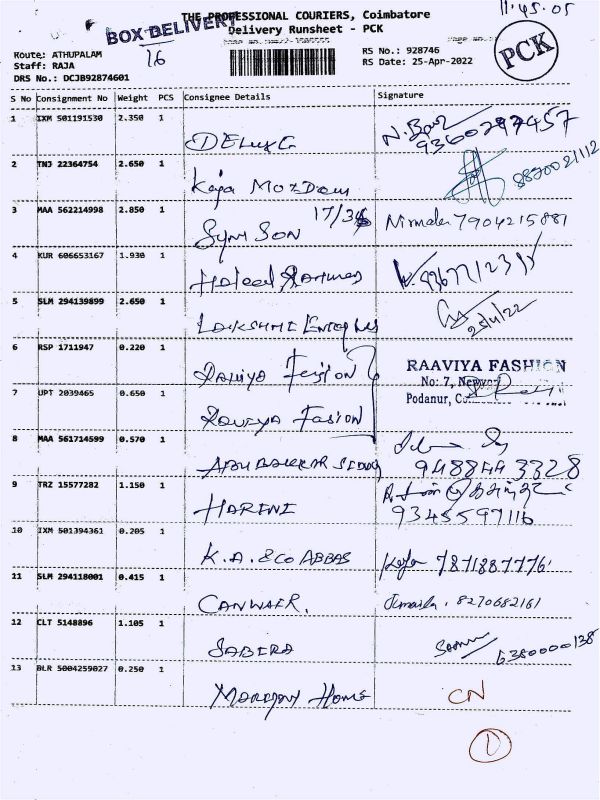 11.45.05
BOX DELIVERY
THE PROFESSIONAL COURIERS, Coimbatore
Delivery Runsheet - PCK
PCK
16
Route: ATHUPALAM
Staff: RAJA
DRS No.: DCJB92874601
RS No.: 928746
RS Date: 25-Apr-2022
S No Consignment No Weight PCS Consignee Details Signature
1 IXM 501191530 2.350 1
9360297457
2 TNJ 22364754 2.650 1 Kaja
8870021112
3 MAA 562214998 2.850 1 17/34
Symson Nirmala 7904215881
4 KUR 606653167 1.930 1
5 SLM 294139899 2.650 1 Lakshmi
25/4/22
6 RSP 1711947 0.220 1
RAAVIYA FASHION
No: 7,
Podanur,
7 UPT 2039465 0.650 1
Raviya Fasion
8 MAA 561714599 0.570 1
9488443328
9 TRZ 15577282 1.150 1 HARINI
9345597116
10 IXM 501394361 0.205 1
K.A. & CO ABBAS 7871887776
11 SLM 294118001 0.415 1
8270682161
12 CLT 5148896 1.105 1
SABIRA 6380000138
13 BLR 5004259027 0.250 1
Home CN
1